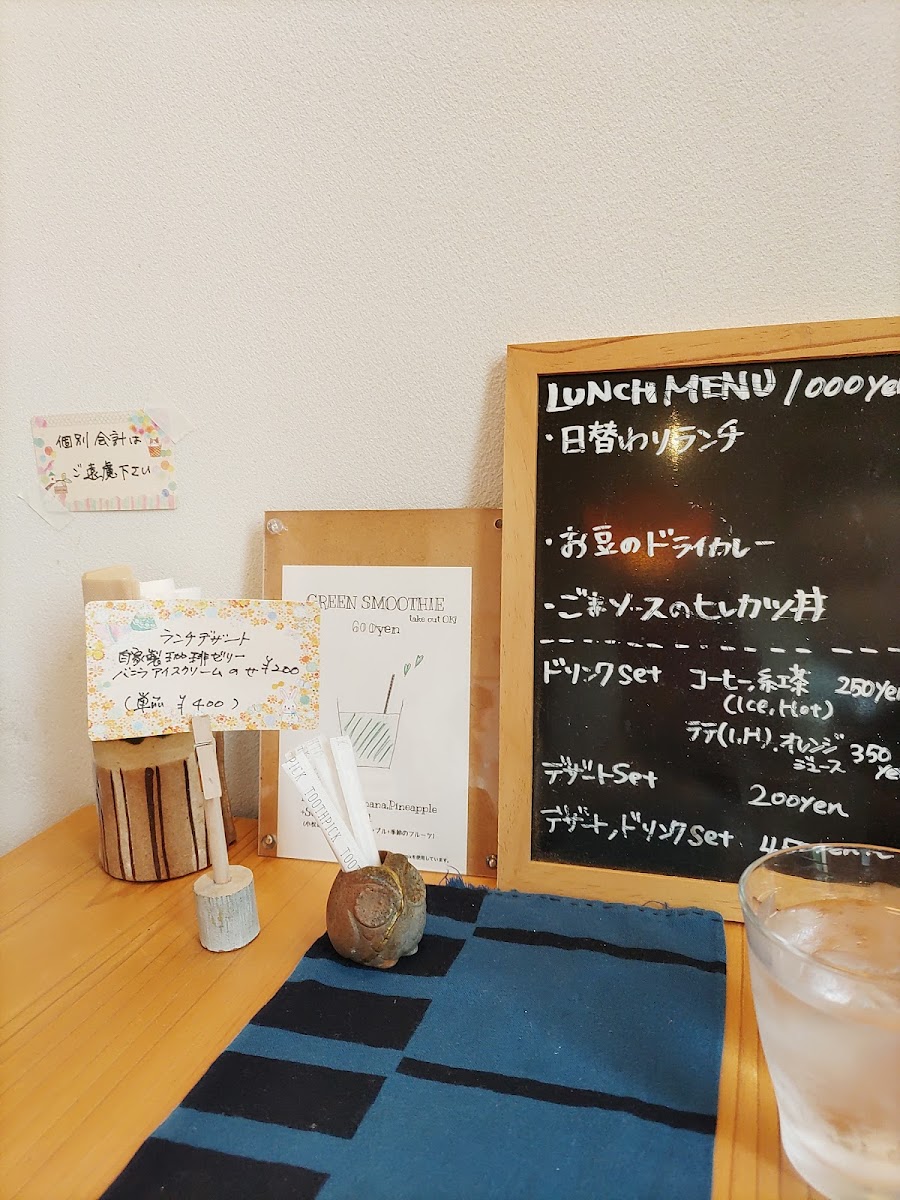 個別会計は
ご遠慮下さい
ランチデザート
自家製珈琲ゼリー
バニラアイスクリームのせ ¥200
(単品 ¥400)
GREEN SMOOTHIE
take out OK!
600yen
Pineapple
季節のフルーツ)
を使用しています。
PICK TOOTHPICK TOO
LUNCH MENU 1000ye
・日替わりランチ
・お豆のドライカレー
・ごまソースのヒレカツ丼
ドリンクset コーヒー、紅茶 250yen
(Ice, Hot)
ラテ(I,H)、オレンジジュース 350ye
デザートset
200yen
デザート,ドリンクset